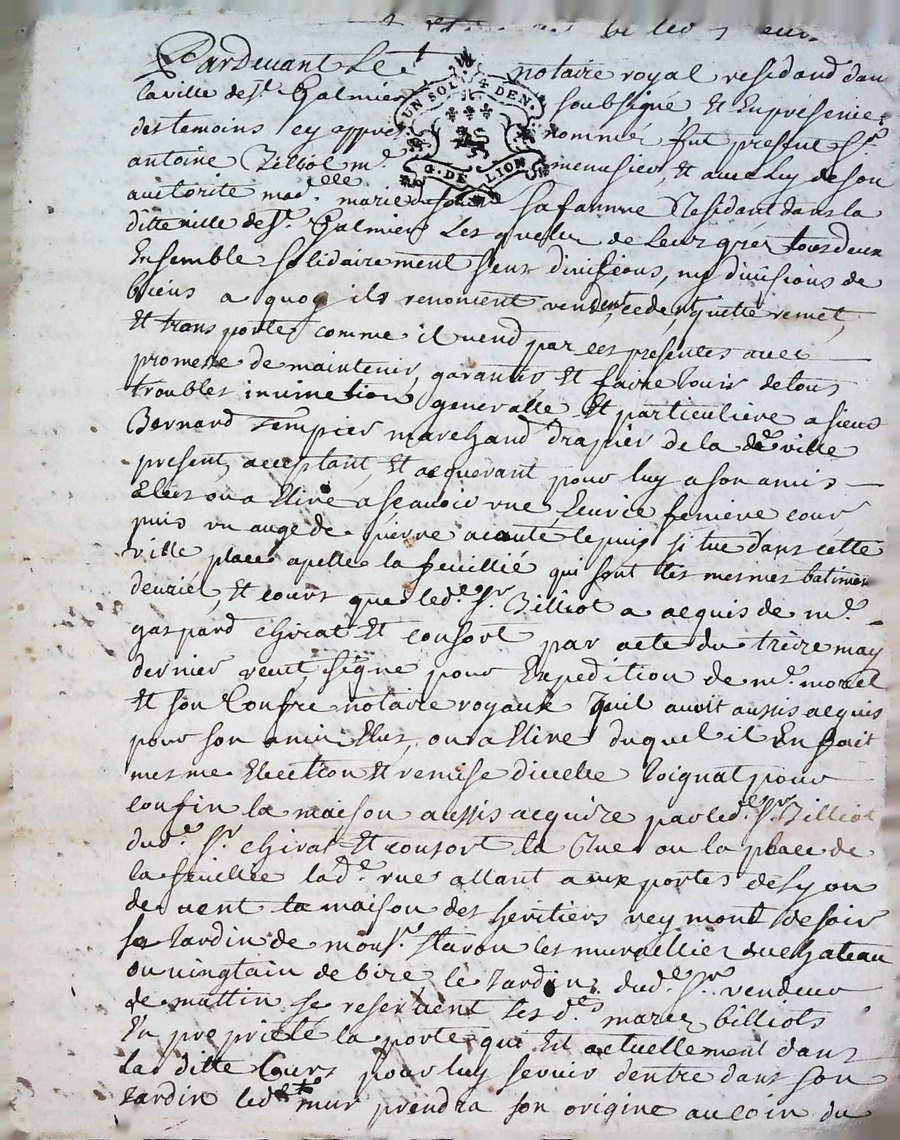 Pardevant Le notaire royal residand dan
UN SOL 4 DEN.
G. DE LION
la ville de st Galmier soubsigné, Et En presence
des temoins cy appres nommés fut present Sr
antoine Billiot me menusier, Et avec luy de son
authorite madelle marie sa famme Residant dans la
ditte ville de st. Galmier Les quels de Leurs grés tous deux
Ensemble solidairement sens divisions, ny divisions de
biens a quoy ils renoncent vendent, cedent, quitte remet,
Et transporte comme il vend par ces presentes avec
promesse de maintenir, garantir Et faire Jouir de tous
troubles inivinction generalle Et particuliere a sieur
Bernard Tempier marchand drapier de la de ville
present, acceptant, Et acquerant pour luy a son amis
Elus ou a Elire a scavoir une Ecurie feniere cour
puis un auge de pierre acauté le puis situe dans cette
ville place apelle la feuillié qui sont les mesmes batimen
Ecurie, Et cours que led. Sr. Billiot a acquis de me.
gaspard chirat Et consort par acte du treize may
dernier reçut, signé pour Expedition de me. morel
Et son Confre notaire royaux Quil avoit aussis acquis
pour son amis Elus, ou a Elire duquel il En fait
mesme Election Et remise dicelle Joignat pour
confin la maison aussis acquire par led. Sr. Billiot
dud. Sr. chirat Et consort la Rue ou la place de
la feuillée lad. rue allant aux portes de Lyon
de vent la maison des heritiers reymont de soir
le Jardin de monsr. Staron les muraillies du chateau
ou vingtain de bize le Jardin dud. Sr. vendeur
de mattin se reservent Les ds. mariés billiots
En propriété la porte qui Est actuellement dans
La ditte Cours pour luy servir dentre dans son
Jardin led. mur prendra son origine au coin du